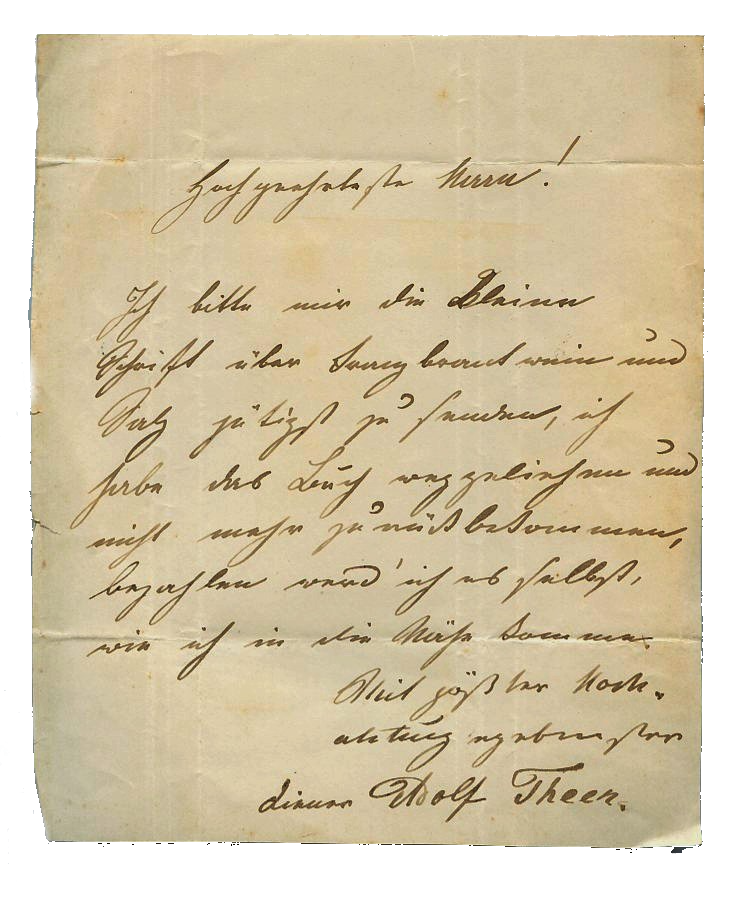 Hochgeehrteste Herrn!
Ich bitte mir die kleine
Schrift über Franzbrantwein und
Salz gütigst zu senden, ich
habe das Buch weggeliehen und
nicht mehr zurükbekommen,
bezahlen werd' ich es selbst,
wie ich in die Nähe komme.
Mit größter Hoch-
achtung egebenster
diener Adolf Theer.